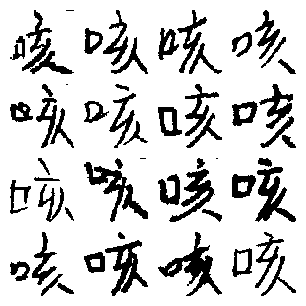 咳咳咳咳
咳咳咳咳
咳咳咳咳
咳咳咳咳